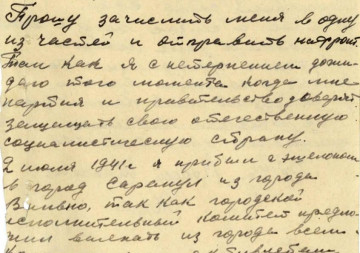 Прошу зачислить меня в одну
из частей и отправить на фронт.
Так как я с нетерпением дожи-
даю того момента когда мне
партия и правительство доверят
защищать свою отечественную
социалистическую страну.
2 июля 1941 г я прибыл с эшелоном
в город Сарапул из города
так как городской
исполнительный комитет предло-
жил выехать из города всем